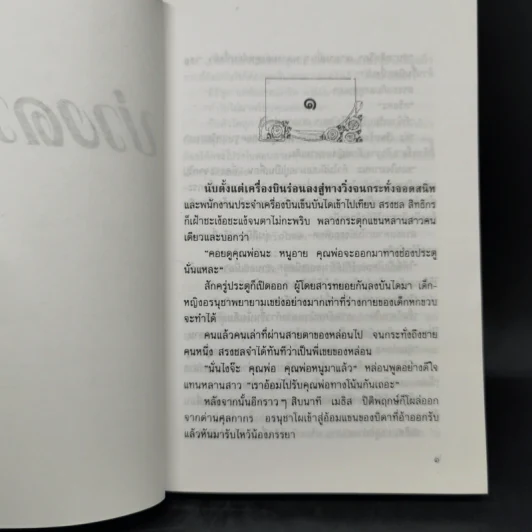 ๑
นับตั้งแต่เครื่องบินร่อนลงสู่ทางวิ่งจนกระทั่งจอดสนิท
และพนักงานประจำเครื่องบินเข็นบันไดเข้าไปเทียบ สรงชล สิทธิกร
ก็เฝ้าชะเง้อชะแง้จนตาไม่กะพริบ พลางกระตุกแขนหลานสาวคน
เดียวและบอกว่า
"คอยดูคุณพ่อนะ หนูอาย คุณพ่อจะออกมาทางช่องประตู
นั่นแหละ"
สักครู่ประตูก็เปิดออก ผู้โดยสารทยอยกันลงบันไดมา เด็ก-
หญิงอรนุชาพยายามเขย่งอย่างมากเท่าที่ร่างกายของเด็กหกขวบ
จะทำได้
คนแล้วคนเล่าที่ผ่านสายตาของหล่อนไป จนกระทั่งถึงชาย
คนหนึ่ง สรงชลจำได้ทันทีว่าเป็นพี่เขยของหล่อน
"นั่นไงจ๊ะ คุณพ่อ คุณพ่อหนูมาแล้ว" หล่อนพูดอย่างดีใจ
แทนหลานสาว "เราอ้อมไปรับคุณพ่อทางโน้นกันเถอะ"
หลังจากนั้นอีกราว ๆ สิบนาที เมธิส ปิติพฤกษ์ก็โผล่ออก
จากด่านศุลกากร อรนุชาโผเข้าสู่อ้อมแขนของบิดาที่อ้าออกรับ
แล้วหันมารับไหว้น้องภรรยา
๑